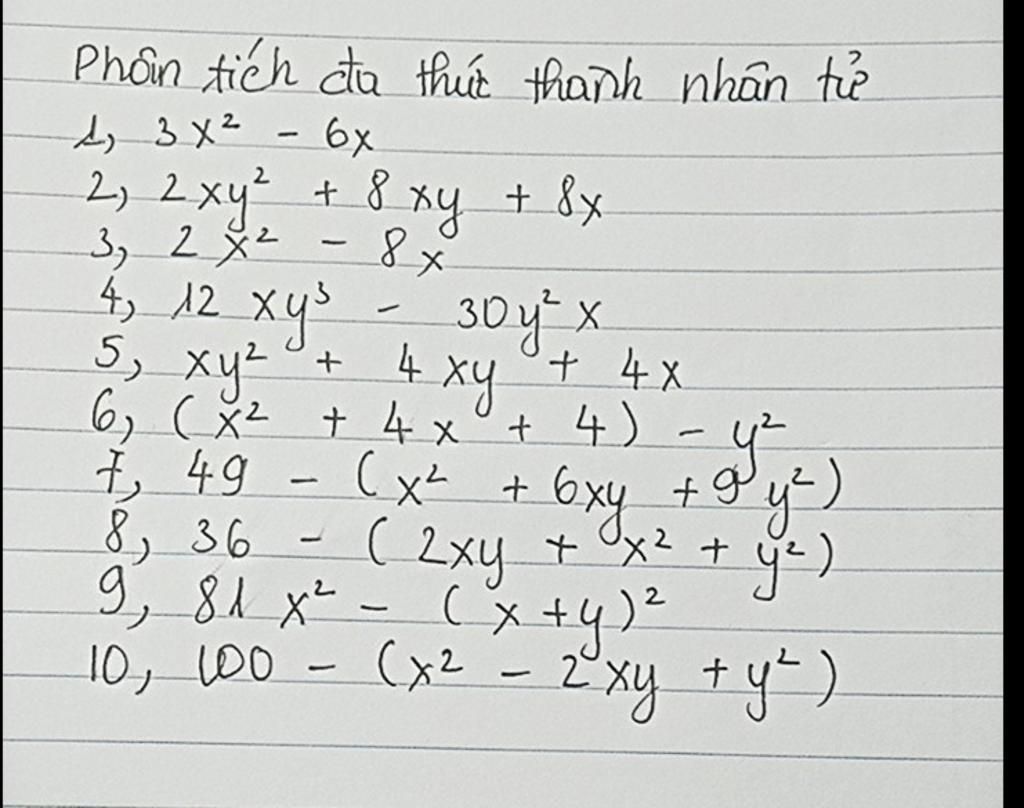 Phân tích đa thức thành nhân tử
1, 3x² - 6x
2, 2xy² + 8xy + 8x
3, 2x² - 8x
4, 12xy³ - 30y²x
5, xy² + 4xy + 4x
6, (x² + 4x + 4) - y²
7, 49 - (x² + 6xy + 9y²)
8, 36 - (2xy + x² + y²)
9, 81x² - (x+y)²
10, 100 - (x² - 2xy + y²)